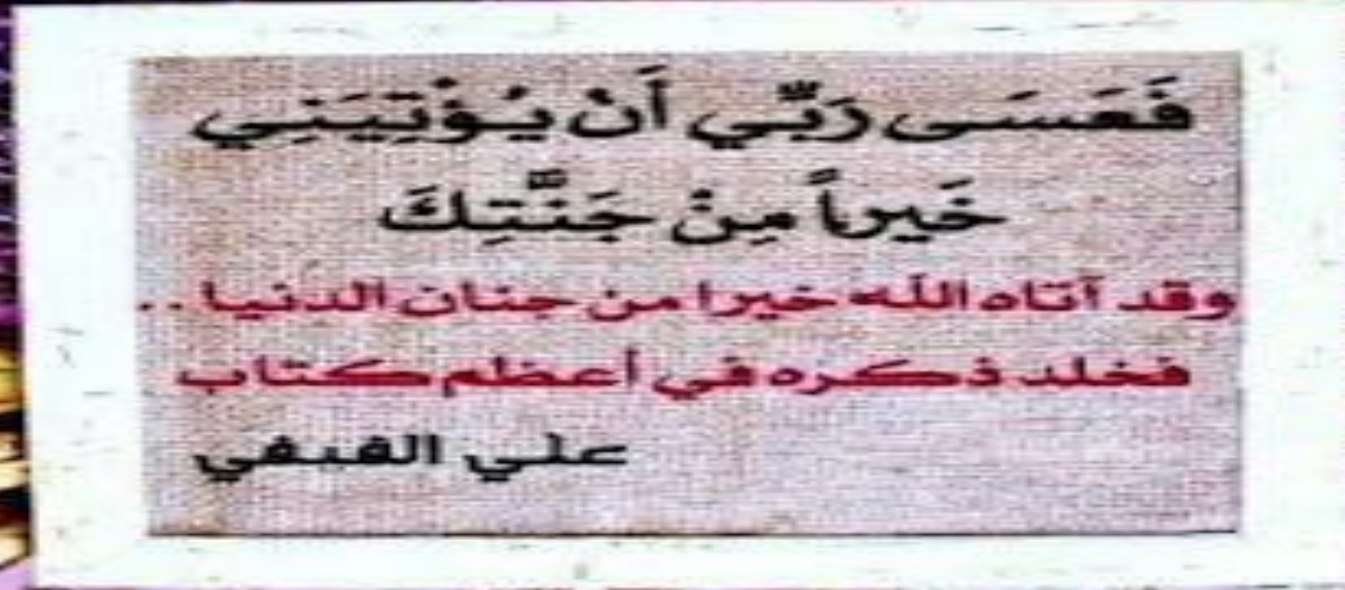 فَعَسَى رَبِّي أَنْ يُؤْتِيَنِي
خَيراً مِنْ جَنَّتِكَ
وقد آتاه الله خيرا من جنان الدنيا ..
فخلد ذكره في أعظم كتاب
علي الفيفي